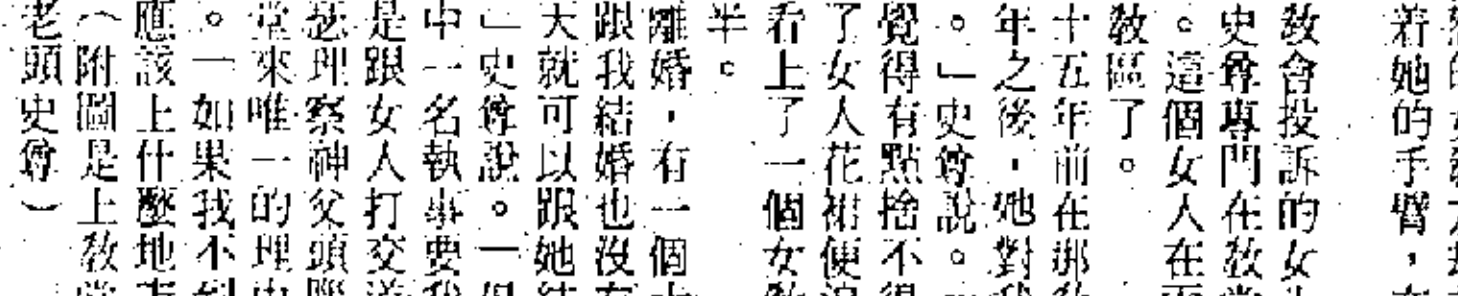 着她的手臂，
教會投訴的女
史尊專門在教
。這個女人在
教區了。
十五年前在那
年之後，她對
。」史尊說。
覺得有點捨不
了女人花裙便
看上了一個女
半。
離婚，有一個
跟我結婚也沒
大就可以跟她
」史尊說。
中一名執事要
是跟女人打交
瑟理察神父頭
堂來唯一的理
。一如果我不
應該上什麼地
（附圖是上教
老頭史尊）